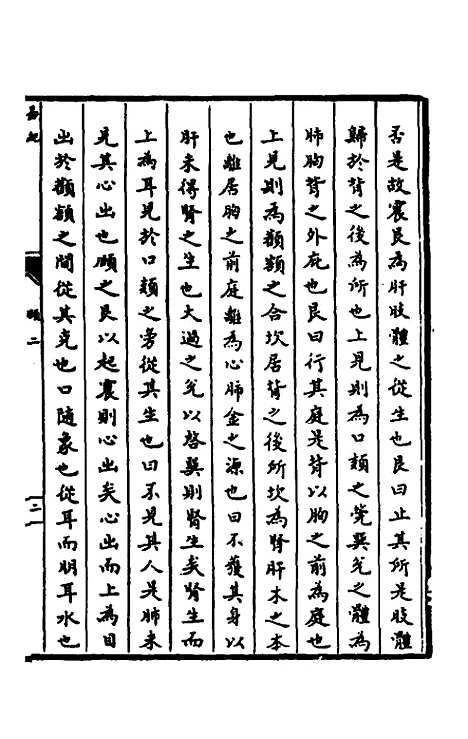 否是故震艮為肝肢體之從生也艮曰止其所是肢體
歸於背之後為所也上見則為口頰之党巽兊之體為
肺胸背之外庇也艮曰行其庭是背以胸之前為庭也
上見則為顴顙之合坎居背之後所坎為腎肝木之本
也離居胸之前庭離為心肺金之源也曰不獲其身以
肝未得腎之生也大過之兊以啓巽則腎生矣腎生而
上為耳見於口頰之旁從其生也曰不見其人是肺未
見其心出也頤之艮以起震則心出矣心出而上為目
出於顴顙之間從其克也口随象也從耳而明耳水也
易起
頤二
二